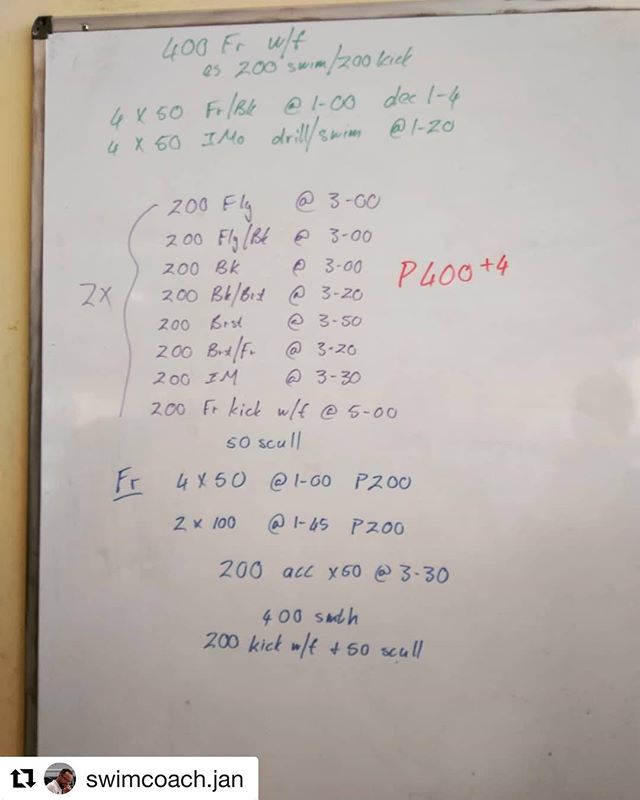 400 Fr w/f
as 200 swim/200 kick
4 x 50 Fr/Bk @ 1-00 dec 1-4
4 x 50 IMo drill/swim @ 1-20
200 Fly @ 3-00
200 Fly/Bk @ 3-00
200 Bk @ 3-00
P400+4
2x
200 Bk/Brst @ 3-20
200 Brst @ 3-50
200 Brst/Fr @ 3-20
200 IM @ 3-30
200 Fr kick w/f @ 5-00
50 scull
Fr 4 x 50 @ 1-00 P200
2 x 100 @ 1-45 P200
200 acc x50 @ 3-30
400 smth
200 kick w/f + 50 scull
swimcoach.jan